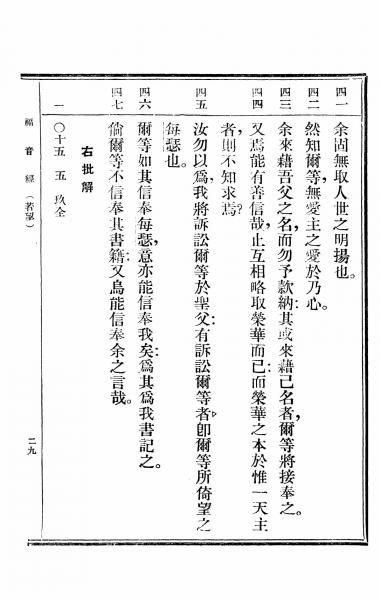 四一 余固無取人世之明揚也。
四二 然知爾等、無愛主之愛於乃心。
四三 余來藉吾父之名、而勿予款納：其或來藉己名者、爾等將接奉之。
四四 又焉能有善信哉、止互相略取榮華而已：而榮華之本於惟一天主
者、則不知求焉？
四五 汝勿以爲、我將訴訟爾等於聖父：有訴訟爾等者、卽爾等所倚望之
每瑟也。
四六 爾等如其信奉每瑟、意亦能信奉我矣：爲其爲我書記之。
四七 倘爾等不信奉其書籍：又烏能信奉余之言哉。
右批解
一 〇十五 五 玖全
福音經（若望）
二九